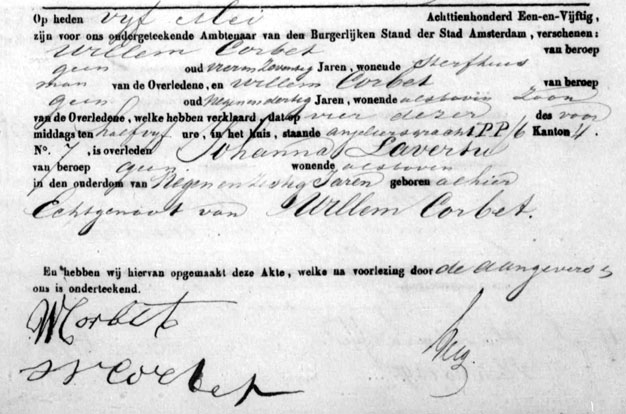 Op heden vyf Mei Achttienhonderd Een-en-Vijftig,
zijn voor ons ondergeteekende Ambtenaar van den Burgerlijken Stand der Stad Amsterdam, verschenen:
Willem Corbet van beroep
geen oud vierenzeventig Jaren, wonende Sterfhuis
man van de Overledene, en Willem Corbet van beroep
geen oud Negenendertig Jaren, wonende alsboven Zoon
van de Overledene, welke hebben verklaard, dat op vier dezer des voor
middags ten half vyf ure, in het huis, staande Angeliersgracht PP 16 Kanton 4.
No. 7, is overleden Johanna Laversu
van beroep geen wonende alsboven
in den ouderdom van Negen en zestig Jaren geboren alhier
Echtgenoot van Willem Corbet.
En hebben wij hiervan opgemaakt deze Akte, welke na voorlezing door de aangevers
ons is onderteekend.
W Corbet
W Corbet